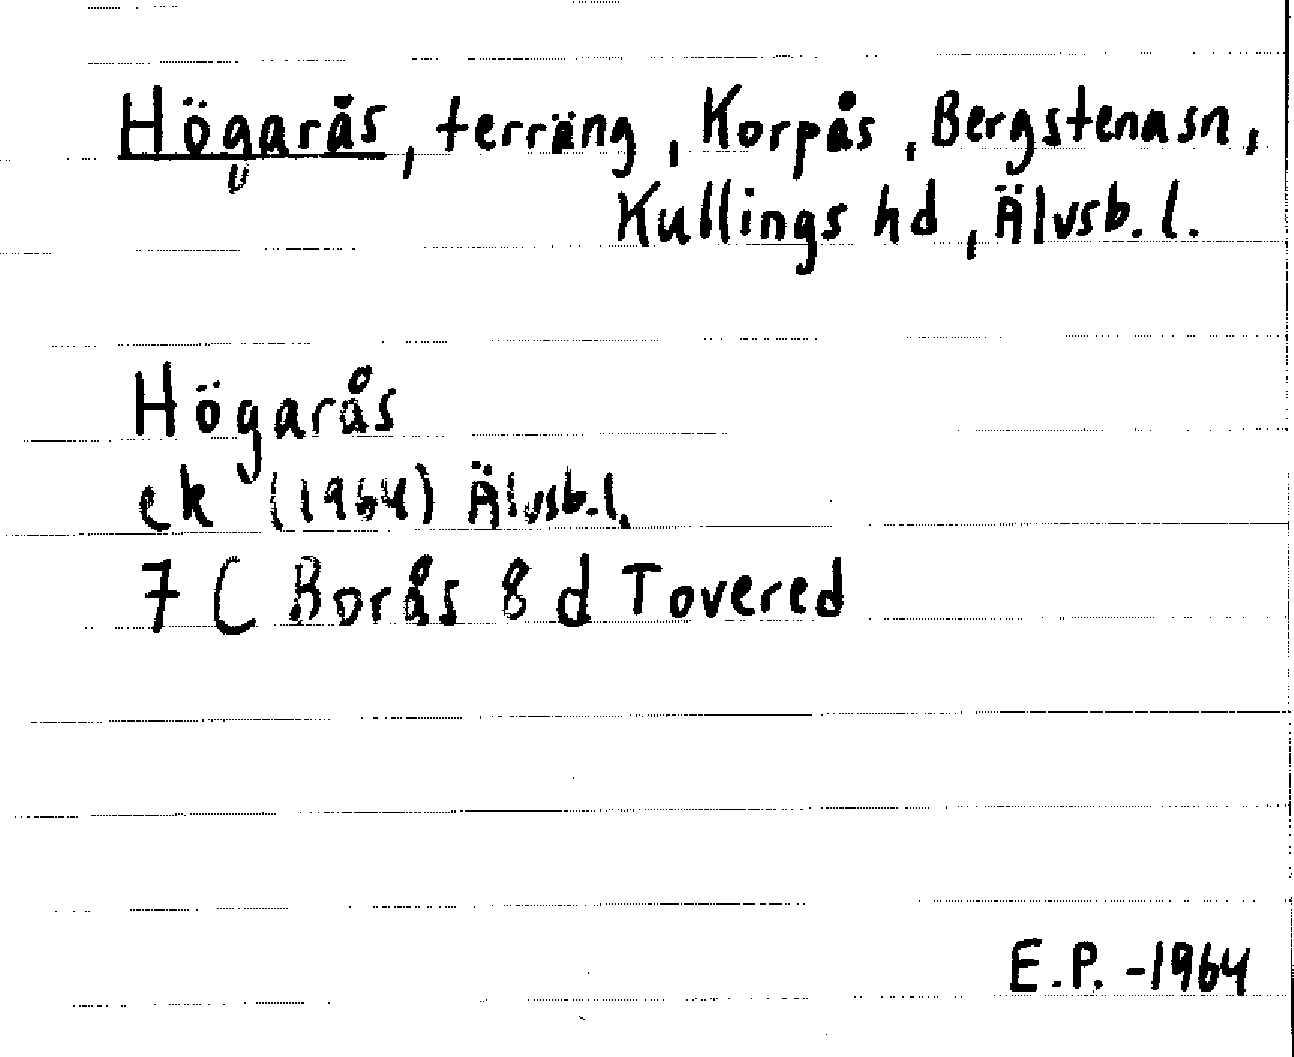 Högarås, terräng, Korpås, Bergstenasn,
Kullings hd, Älvsb. l.
Högarås
ek (1964) Älvsb. l.
7 C Borås 8 d Tovered
E.P. -1964